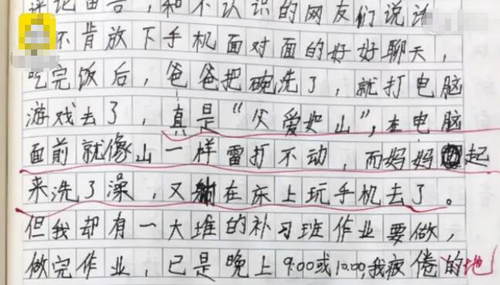 评论留言，和不认识的网友们说话
不肯放下手机面对面的好好聊天，
吃完饭后，爸爸把碗洗了，就打电脑
游戏去了，真是“父爱如山”，在电脑
面前就像山一样雷打不动，而妈妈起
来洗了澡，又躺在床上玩手机去了。
但我却有一大堆的补习班作业要做，
做完作业，已是晚上9:00或10:00,我疲倦的地